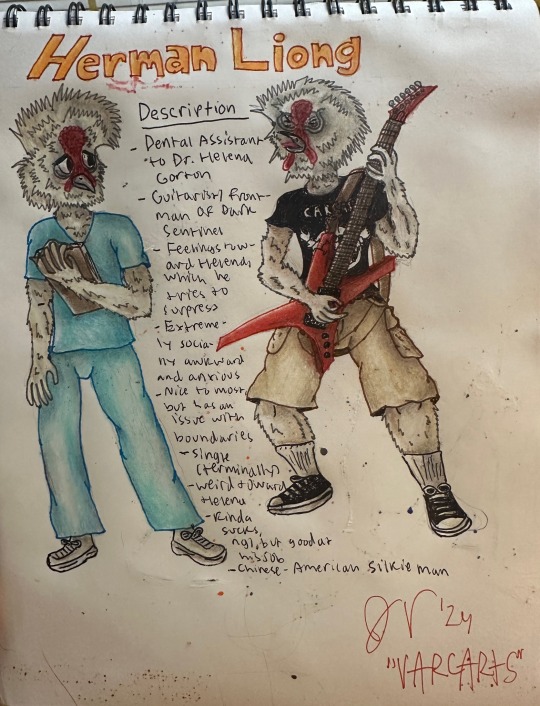 Herman Liong
Description
- Dental Assistant
to Dr. Helena
Gorton
- Guitarist/front-
man of Dark
Sentinel
- Feelings tow-
ard Helena,
which he
tries to
surpress
- Extreme-
ly socia-
lly awkward
and anxious
- Nice to most,
but has an
issue with
boundaries
- Single
(terminally)
- weird toward
Helena
- Kinda
sucks,
ngl, but good at
his job
- Chinese-American Silkie man
JV '24
"VARGARTS"